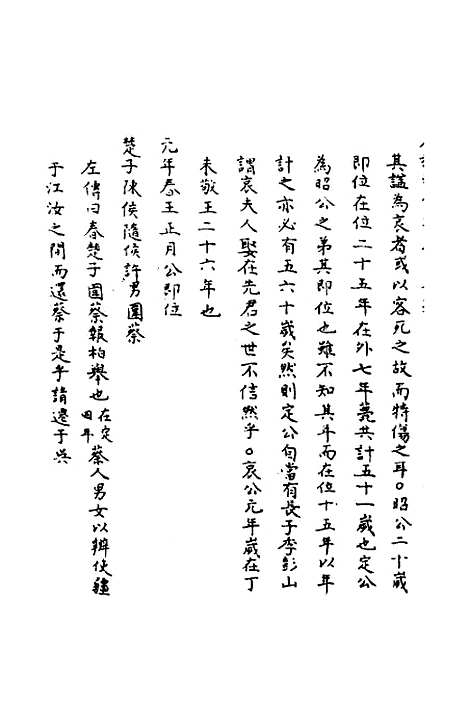 其諡為哀者或以客死之故而特傷之耳○昭公二十歲
即位在位二十五年在外七年薨共計五十一歲也定公
為昭公之弟其即位也雖不知其年而在位十五年以年
計之亦必有五六十歲矣然則定公旬當有長子李彭山
謂哀夫人娶在先君之世不信然乎○哀公元年歲在丁
未敬王二十六年也
元年春王正月公即位
楚子陳侯隨侯許男圍蔡
左傳曰春楚子圍蔡報柏舉也在定四年蔡人男女以辨使疆
于江汝之間而還蔡于是乎請遷于吳